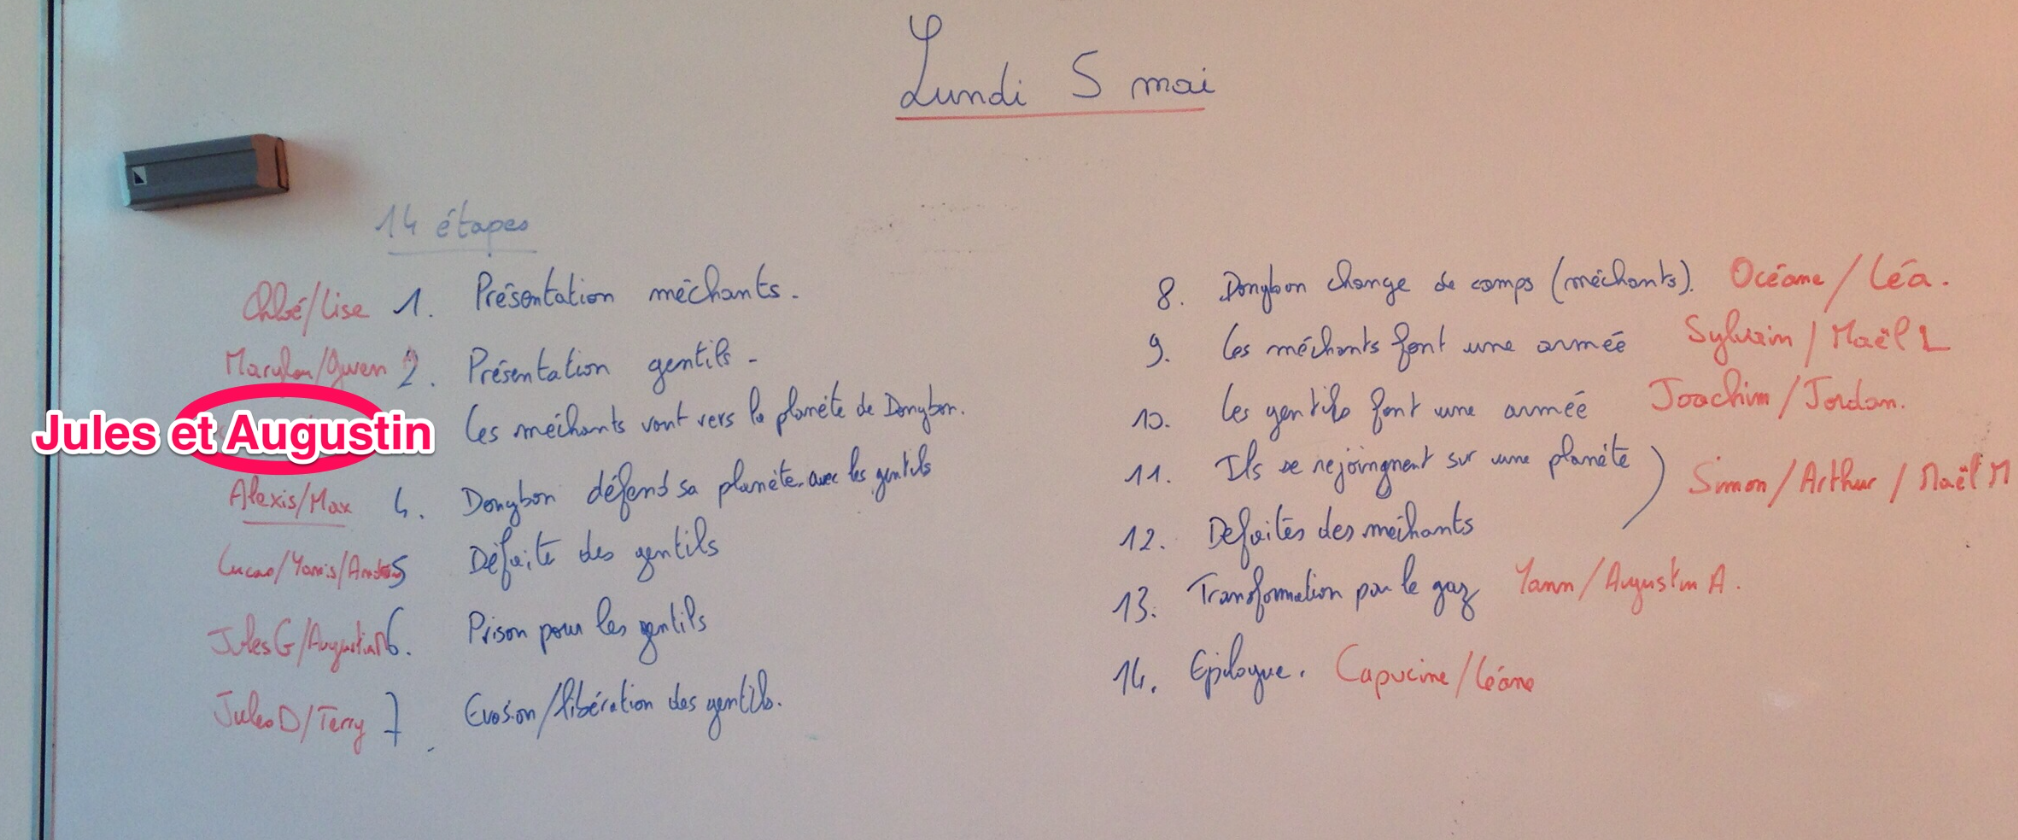 Lundi 5 mai
14 étapes
Chloé/Lise 1. Présentation méchants.
Marylou/Gwen 2. Présentation gentils.
Jules et Augustin Les méchants vont vers la planète de Dongbon.
Alexis/Max 4. Dongbon défend sa planète avec les gentils
Lucas/Yanis/ 5 Défaite des gentils
Jules G/Augustin 6. Prison pour les gentils
Jules D/Terry 7. Evasion/libération des gentils.
8. Dongbon change de camps (méchants). Océane/Léa.
9. Les méchants font une armée Sylvain/Maël L
10. Les gentils font une armée Joachim/Jordan.
11. Ils se rejoingnent sur une planète
12. Defaites des méchants
Simon/Arthur/Maël M
13. Transformation par le gaz Yann/Augustin A.
14. Epilogue. Capucine/Léane